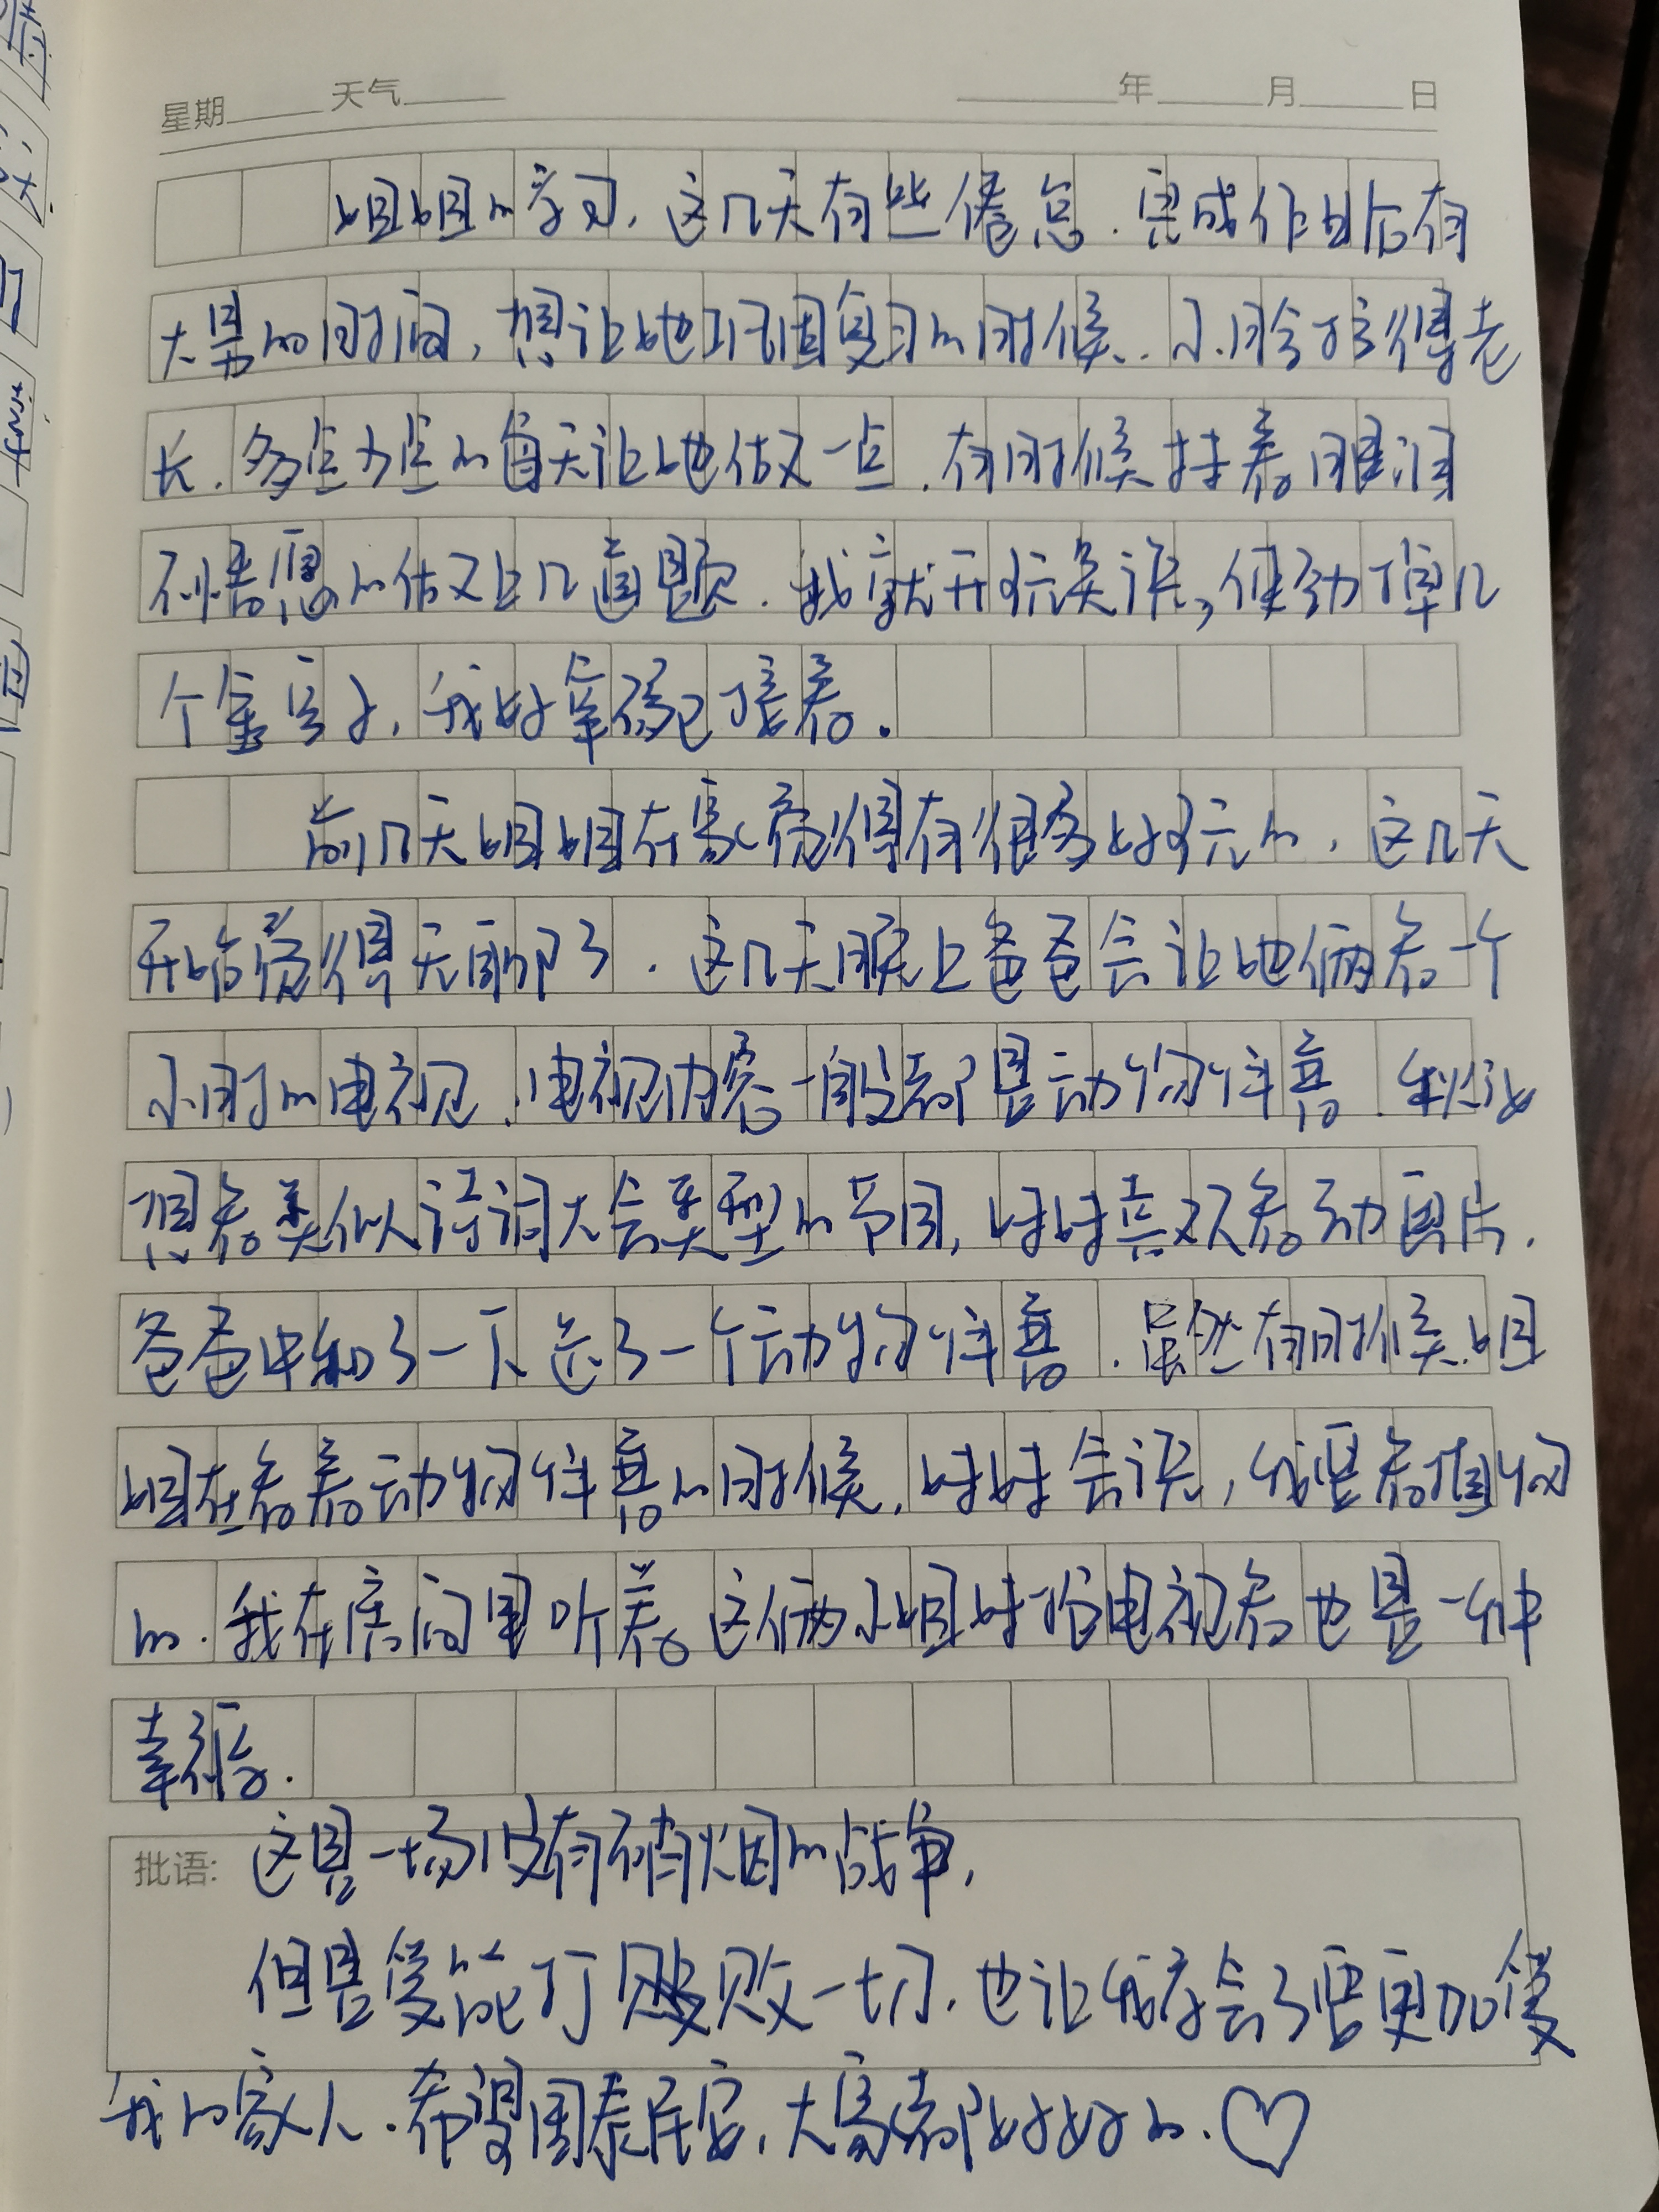 星期 天气 年 月 日
姐姐的学习,这几天有些倦怠.完成作业后有
大量的时间,想让她巩固复习的时候.小脸拉得老
长.多点少点的每天让她做一点.有时候挂着眼泪
不情愿的做上几道题.我就开玩笑说,使劲掉几
个金豆子,我好拿碗接着.
前几天姐姐在家觉得有很多好玩的,这几天
开始觉得无聊了.这几天晚上爸爸会让她俩看一个
小时的电视.电视内容一般都是动物世界.
想看类似诗词大会类型的节目,妹妹喜欢看动画片.
爸爸中和了一下选了一个动物世界.虽然有时候姐
姐在看着动物世界的时候,妹妹会说,我要看植物
的.我在房间里听着这俩小姐妹抢电视看也是一种
幸福.
批语:这是一场没有硝烟的战争,
但是爱能打败一切.也让我学会了要更加爱
我的家人.希望国泰民安,大家都好好的.